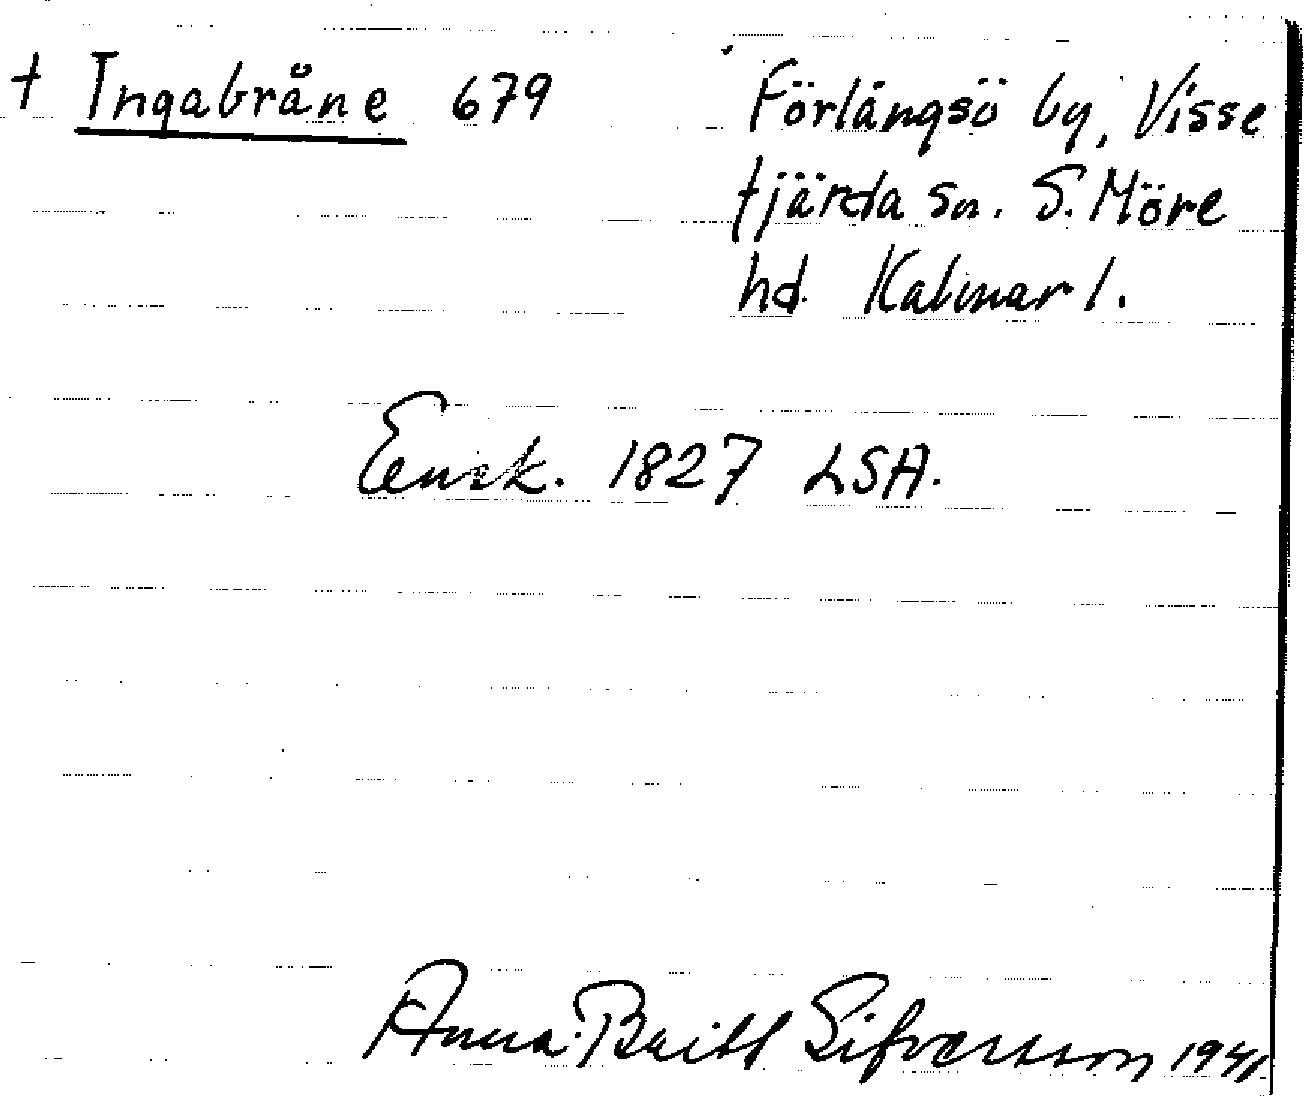 † Ingabråne 679 Förlångsö by, Visse
fjärda sn. S. Möre
hd. Kalmar l.
Ensk. 1827 LSA.
Anna-Britt Sifversson 1941